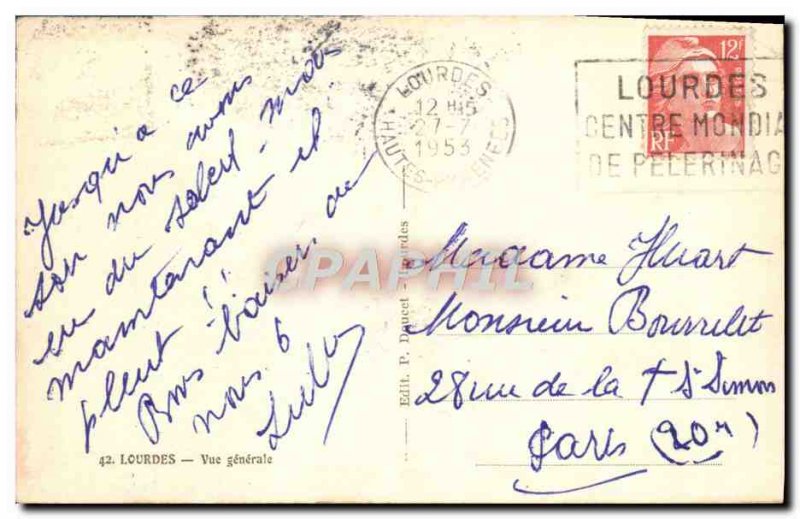 Jusqu'à ce
soir nous avons
eu du soleil - mais
maintenant il
pleut !!
Bons baisers de
nous 6
42. LOURDES — Vue générale
Edit. P. Doucet - Lourdes
LOURDES
12 H15
27-7
1953
HAUTES-PYRENEES
12F
RF
LOURDES
CENTRE MONDIA
DE PELERINAG
Madame Huart
Monsieur Bourrelet
28 rue de la + St Simon
Paris (20e)
CPAPHIL